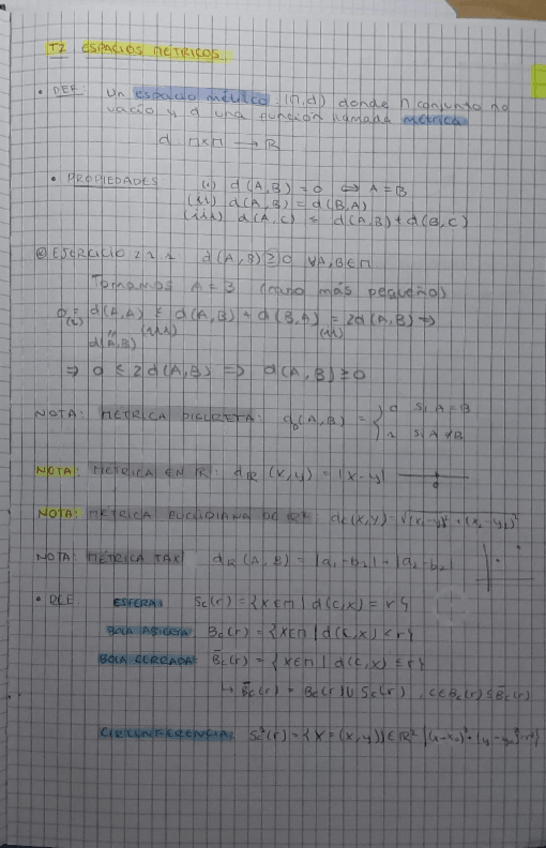 T2 ESPACIOS MÉTRICOS
• DEF: Un espacio métrico: (M,d) donde M conjunto no
vacío y d una función llamada métrica
d: M×M → R
• PROPIEDADES: (i) d(A,B) = 0 ⇔ A = B
(ii) d(A,B) = d(B,A)
(iii) d(A,C) ≤ d(A,B) + d(B,C)
EJERCICIO 2.1.1 d(A,B) ≥ 0 ∀A,B∈M
Tomamos A = B (caso más pequeño)
0 = d(A,A) ≤ d(A,B) + d(B,A) = 2d(A,B) ⇒
(i) (iii) (ii)
d(A,B)
⇒ 0 ≤ 2d(A,B) ⇒ d(A,B) ≥ 0
NOTA: MÉTRICA DISCRETA: d₀(A,B) = { 0 si A = B
1 si A ≠ B
NOTA: MÉTRICA EN R: dR(x,y) = |x-y|
0
NOTA: MÉTRICA EUCLIDIANA DE R²: de(x,y) = √(x₁-y₁)² + (x₂-y₂)²
NOTA: MÉTRICA TAXI d (A,B) = |a₁-b₂| + |a₂-b₂|
• DEF: ESFERA: Sc(r) = {x∈M | d(c,x) = r}
BOLA ABIERTA: Bc(r) = {x∈M | d(c,x) < r}
BOLA CERRADA: B̄c(r) = {x∈M | d(c,x) ≤ r}
↳ B̄c(r) = Bc(r) ∪ Sc(r), c∈Bc(r) ⊆ B̄c(r)
CIRCUNFERENCIA: S¹c(r) = {X = (x,y) ∈ R² | (x-x₀)² + (y-y₀)² = r²}